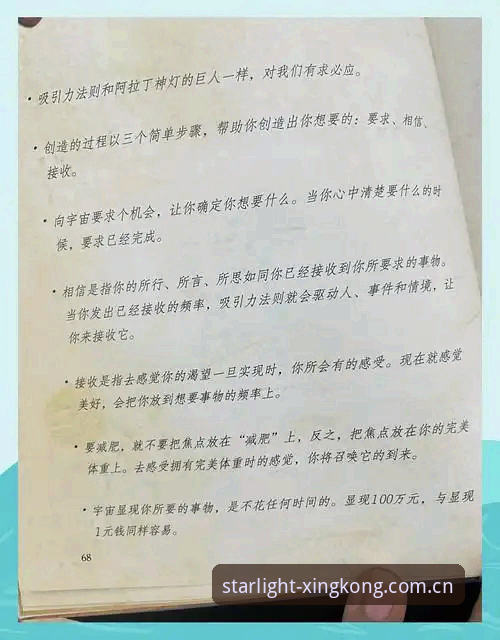 •吸引力法则和阿拉丁神灯的巨人一样，对我们有求必应。
•创造的过程以三个简单步骤，帮助你创造出你想要的：要求、相信、
接收。
•向宇宙要求个机会，让你确定你想要什么。当你心中清楚要什么的时
候，要求已经完成。
•相信是指你的所行、所言、所思如同你已经接收到你所要求的事物。
当你发出已经接收的频率，吸引力法则就会驱动人、事件和情境，让
你来接收它。
•接收是指去感觉你的渴望一旦实现时，你所会有的感受。现在就感觉
美好，会把你放到想要事物的频率上。
•要减肥，就不要把焦点放在“减肥”上，反之，把焦点放在你的完美
体重上。去感受拥有完美体重时的感觉，你将召唤它的到来。
•宇宙显现你所要的事物，是不花任何时间的。显现100万元，与显现
1元钱同样容易。
68
starlight-xingkong.com.cn